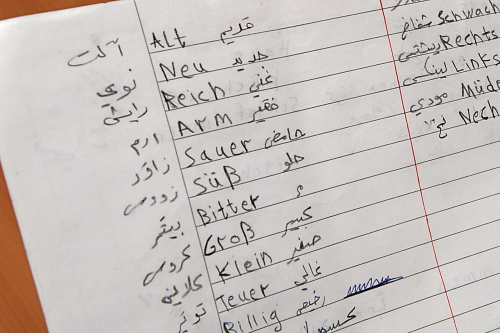 آلت Alt قديم
نوي Neu جديد
رايش Reich غني
ارم Arm فقير
زاور Sauer حامض
زوس Süß حلو
بيتر Bitter مر
كروس Groß كبير
كلاين Klein صغير
تویر Teuer غالي
Billig رخيص
Schwach
Rechts
Links
مودي Müde
Nech